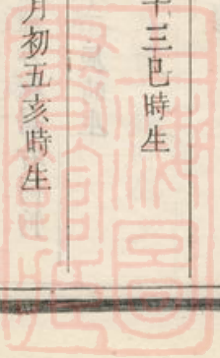 十三巳時生
月初五亥時生